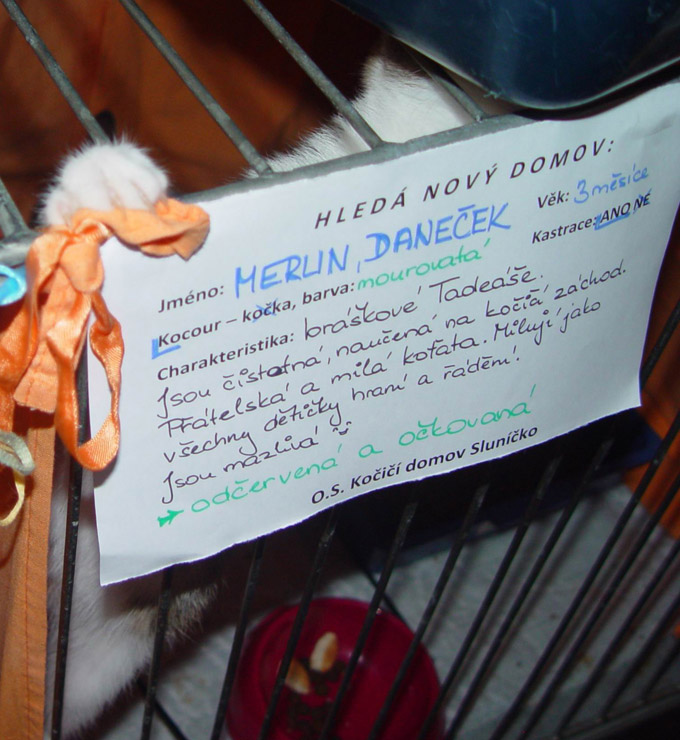 HLEDÁ NOVÝ DOMOV:
Jméno: MERLIN, DANEČEK Věk: 3 měsíce
Kocour – kočka, barva: mourovatá Kastrace: ANO NE
Charakteristika: bráškové Tadeáše.
Jsou čistotná, naučená na kočičí záchod.
Přátelská a milá koťata. Milují jako
všechny dětičky hraní a řádění!
Jsou mazlivá
odčervená a očkovaná
O.S. Kočičí domov Sluníčko